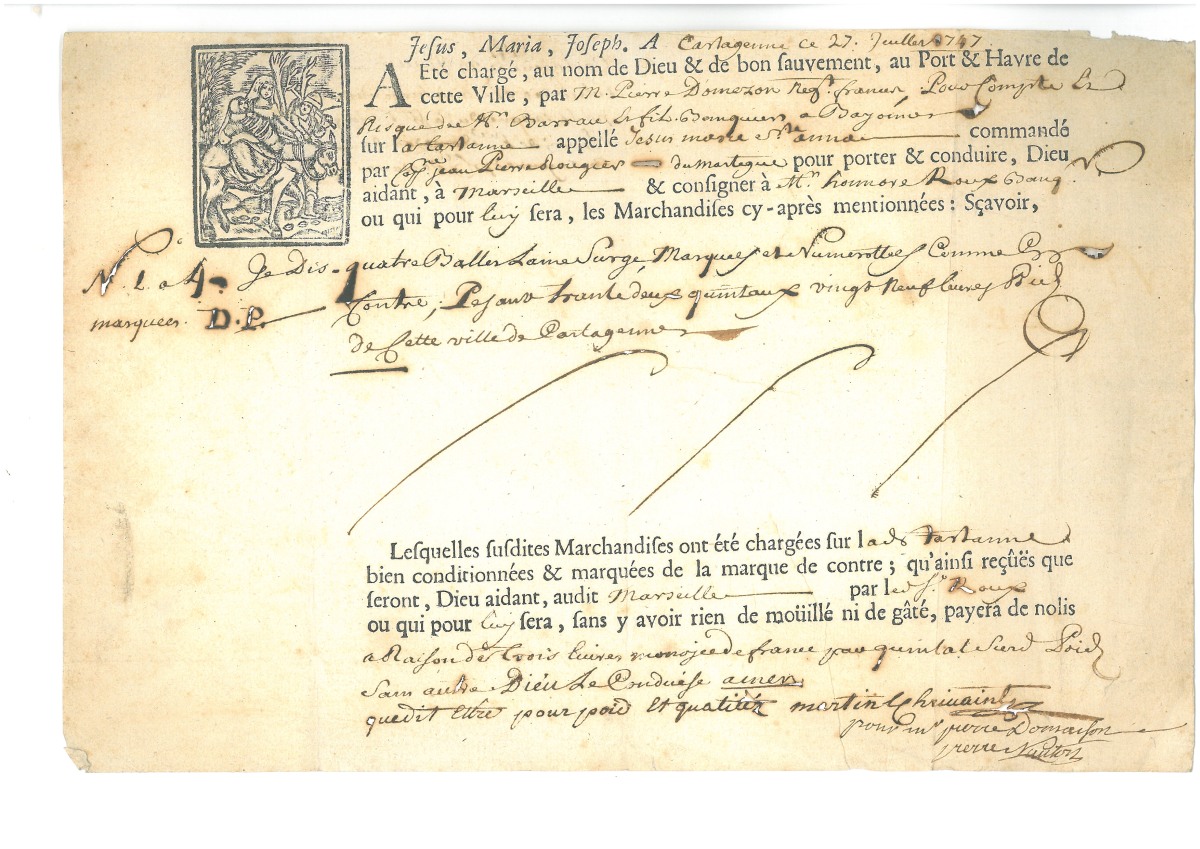 Jesus, Maria, Joseph. A Cartagenne ce 27. Juillet 1747
A Eté chargé, au nom de Dieu & de bon sauvement, au Port & Havre de
cette Ville, par M. Pierre Domezon Negt. francois Pour Compte Et
Risque de Mrs. Barrau et fils Banquiers a Bayonne
sur la tartanne appellé Jesus marie Ste anne commandé
par Cpne jean Pierre Rougier du martegue pour porter & conduire, Dieu
aidant, à Marseille & consigner à Mr. honnore Roux Banqr.
ou qui pour luy sera, les Marchandises cy-après mentionnées: Sçavoir,
No. 1. a 4. Je Dis quatre Balles Laine Surge Marquees et Numerottees Comme En
marquees D.P. Contre, Pesant trante deux quintaux vingt Neuf livres Poid
de Cette ville de Cartagenne
Lesquelles susdites Marchandises ont été chargées sur lade tartanne
bien conditionnées & marquées de la marque de contre; qu'ainsi reçûës que
seront, Dieu aidant, audit Marseille par led. Sr. Roux
ou qui pour luy sera, sans y avoir rien de moüillé ni de gâté, payera de nolis
a Raison de trois livres monoye de france par quintal Surd Poid
Sans autre Dieu Le Conduise amen
que dit Estre pour poid Et quatitéz martin
pour mr pierre Domaison
pierre